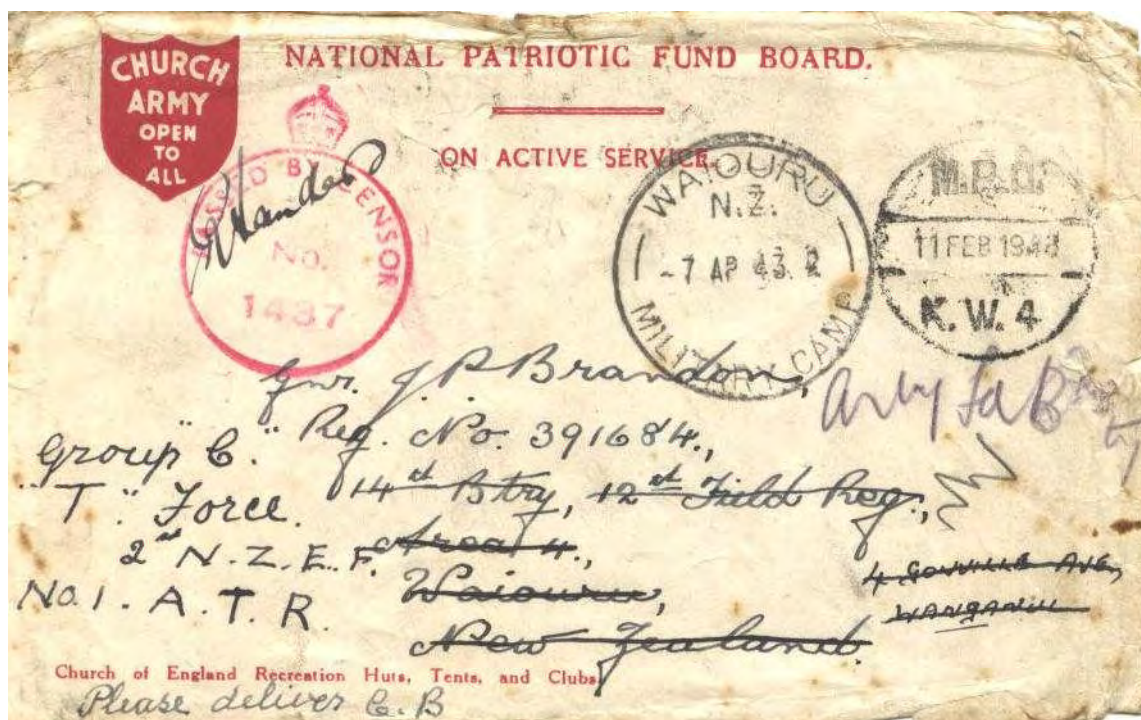 CHURCH
ARMY
OPEN
TO
ALL
NATIONAL PATRIOTIC FUND BOARD.
ON ACTIVE SERVICE.
PASSED BY CENSOR
No.
1487
WAIOURU
N.Z.
-7 AP 43
MILITARY CAMP
11 FEB 194
K.W.4
Gnr. J. P. Brandon,
Reg. No. 391684.,
14th Btry, 12th Field Reg.,
Area 4.,
Waiouru,
New Zealand.
Group "C."
"T" Force.
2nd N.Z.E.F.
No.1. A.T.R.
4 GONVILLE AVE,
WANGANUI
Church of England Recreation Huts, Tents, and Clubs.
Please deliver C.B